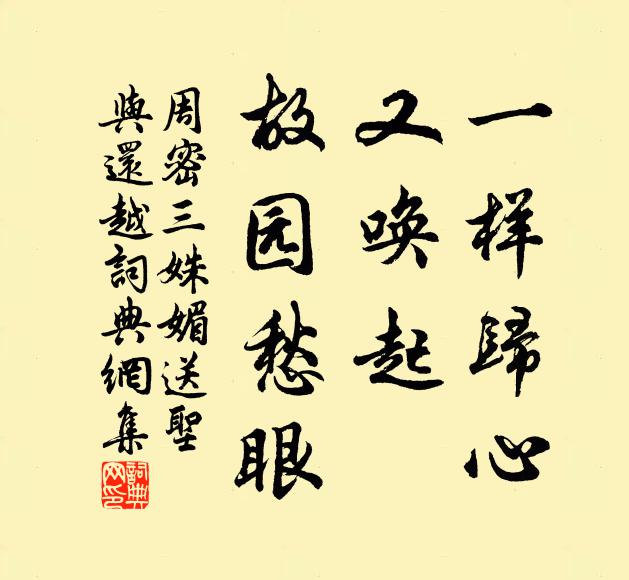 一样歸心
又唤起
故园愁眼
周密三姝媚送聖
與還越詞典網集
詞典
网印